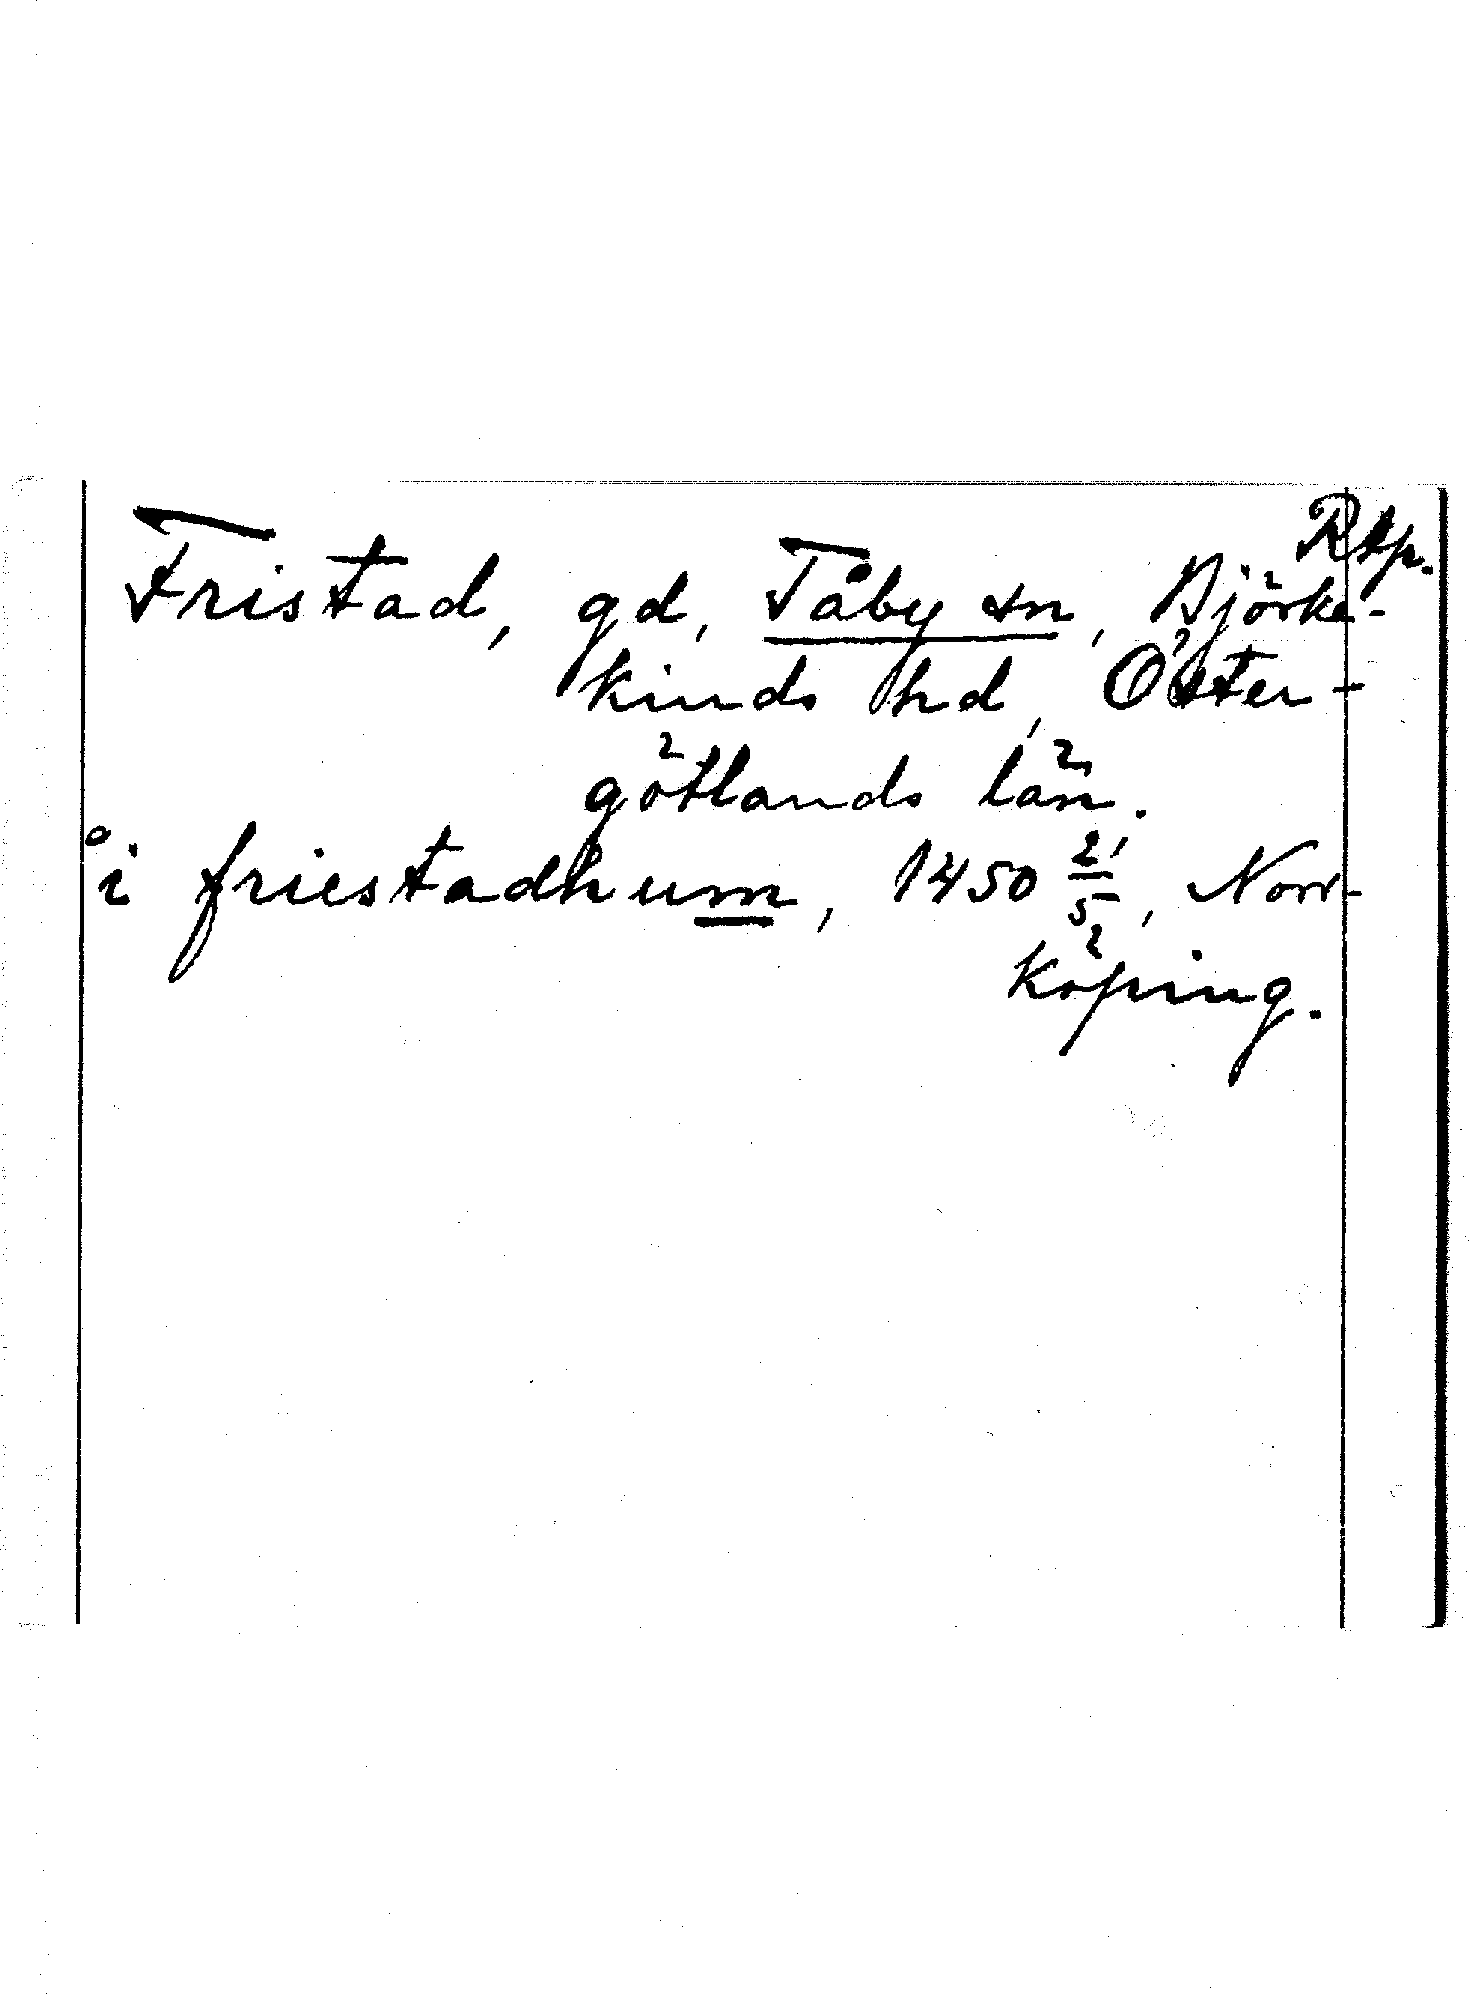 Rtp.
Fristad, gd, Tåby sn, Björke-
kinds hd, Öster-
götlands län.
°i friestadhum, 1450 21/5, Norr-
köping.